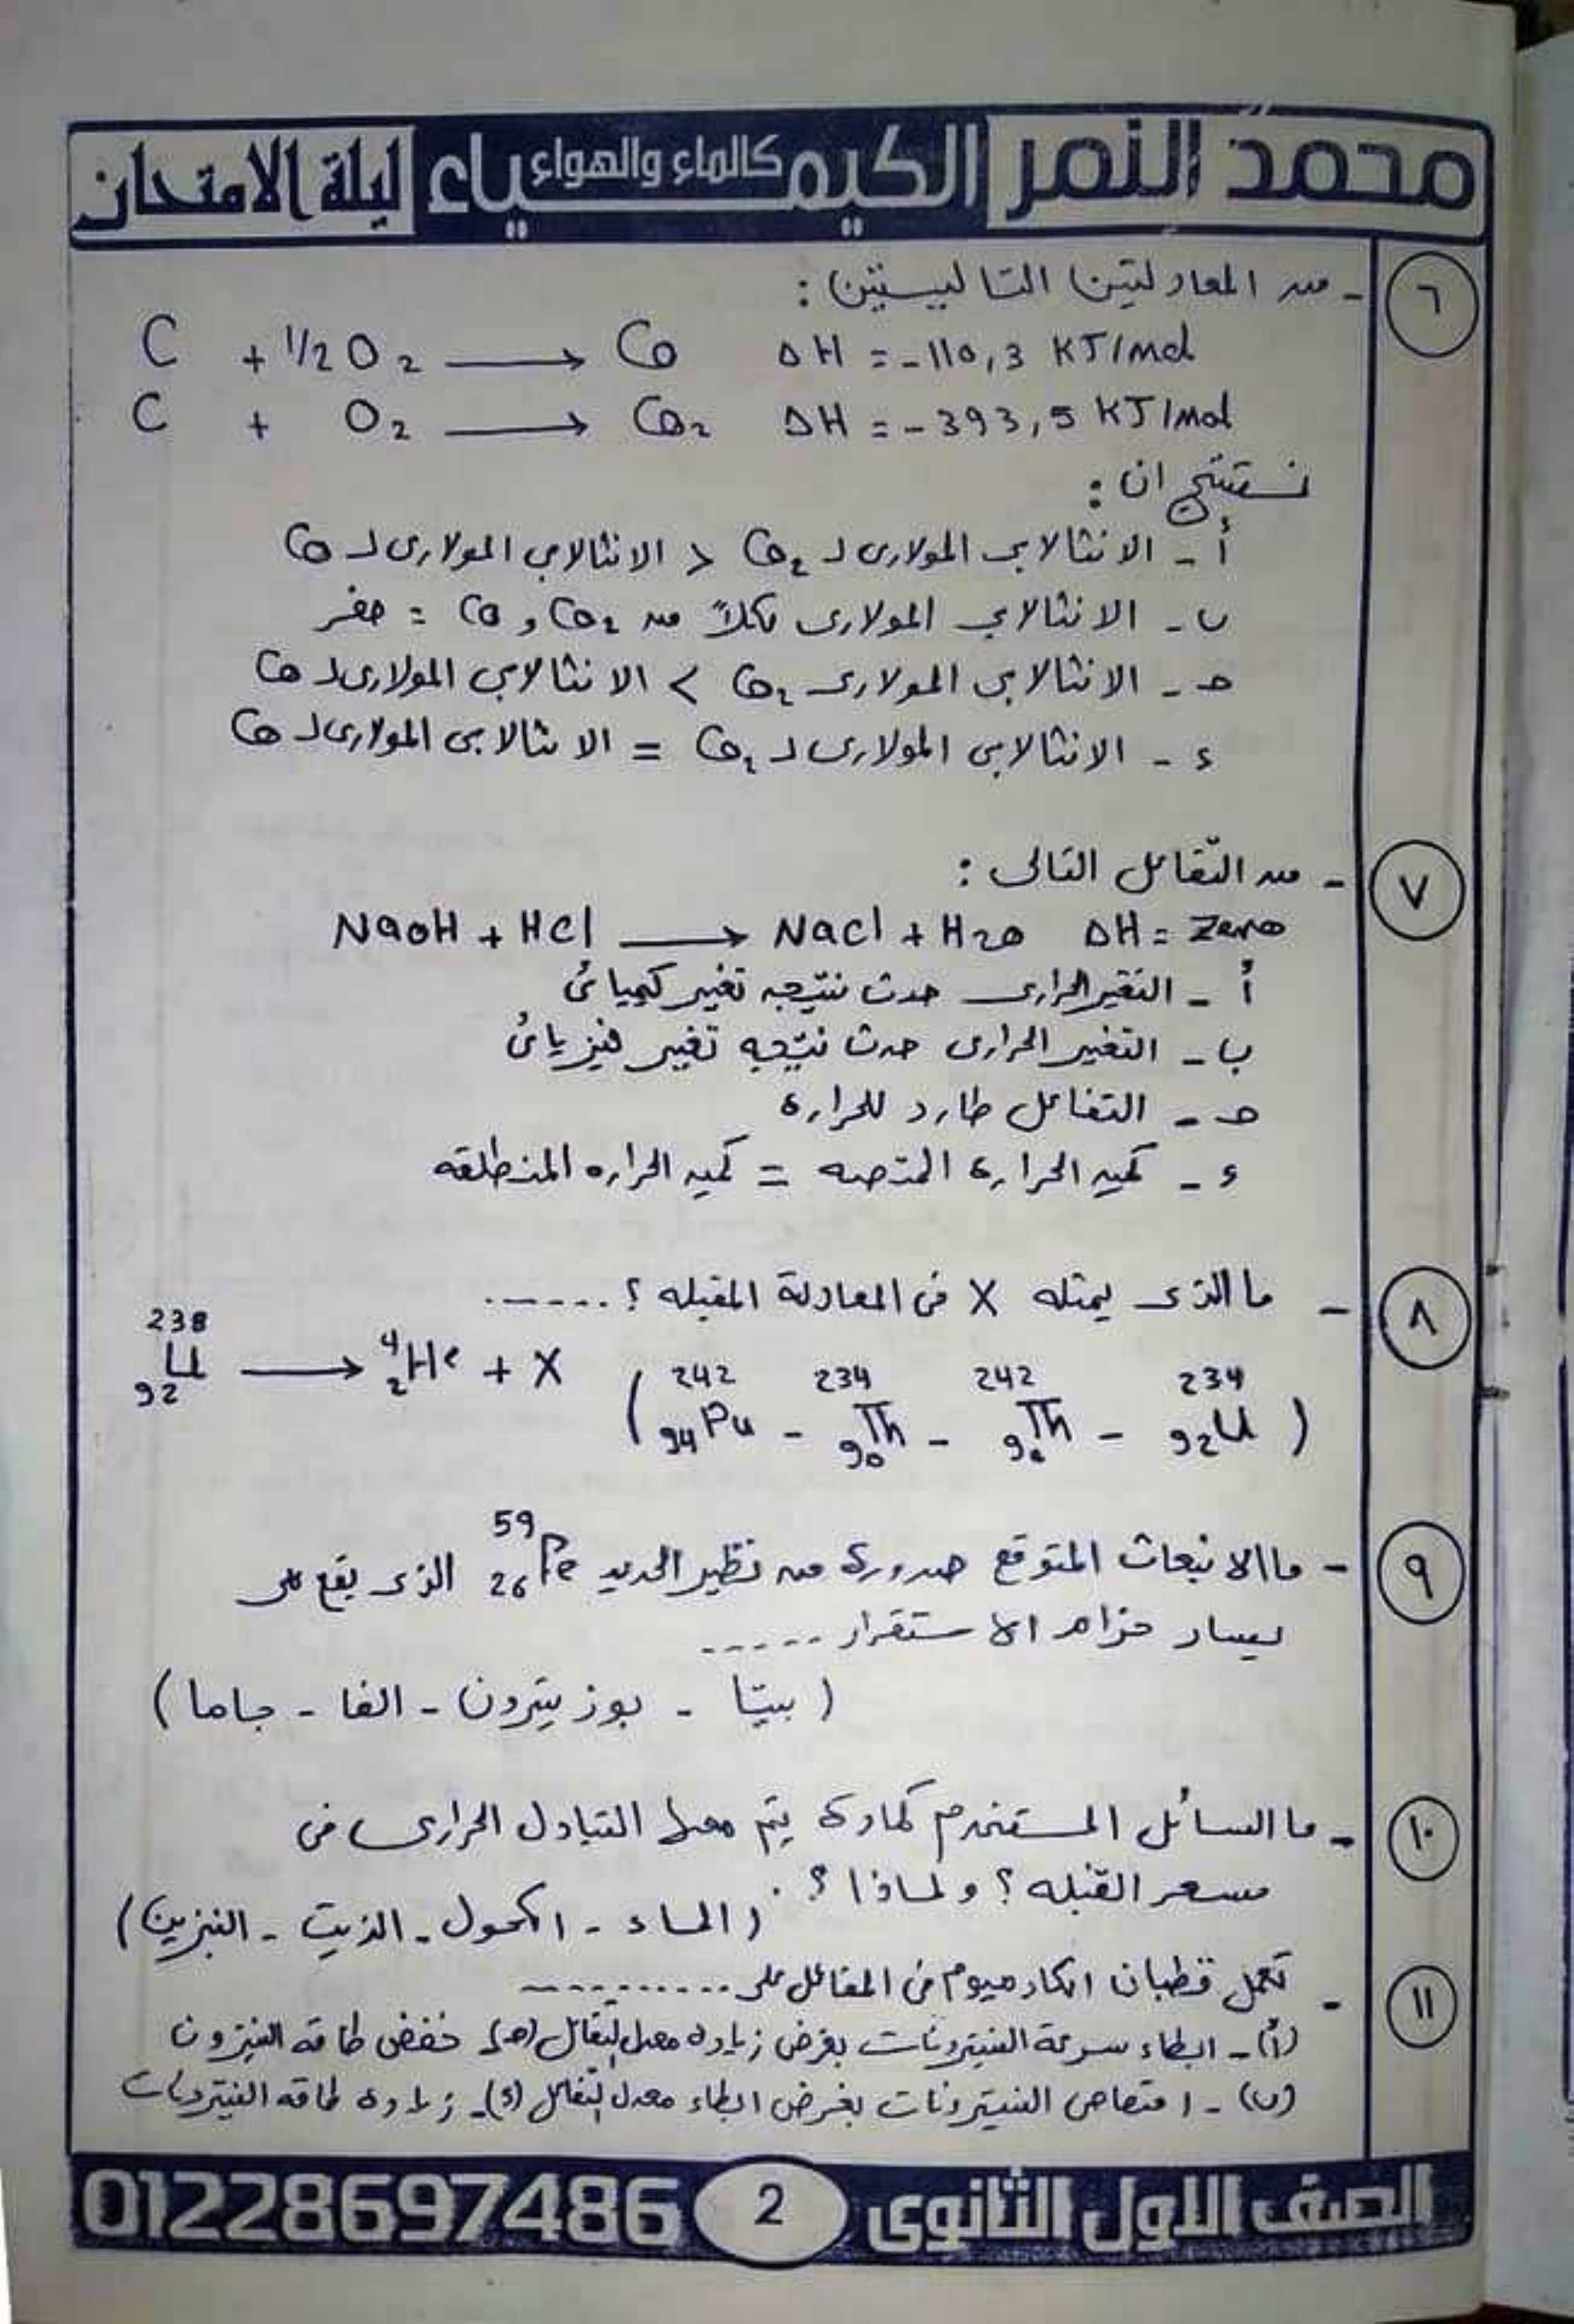 محمد النمر الكيمياء كالماء والهواء ليلة الامتحان
٦ - من المعادلتين التاليتين :
C + 1/2 O2 ⟶ CO ΔH = -110,3 KJ/mol
C + O2 ⟶ CO2 ΔH = -393,5 KJ/mol
نستنتج ان :
أ - الانثالابى المولارى لـ CO2 < الانثالابى المولارى لـ CO
ب - الانثالابى المولارى لكلاً من CO2 و CO = صفر
حـ - الانثالابى المولارى CO2 > الانثالابى المولارى لـ CO
ء - الانثالابى المولارى لـ CO2 = الانثالابى المولارى لـ CO
٧ - من التفاعل التالى :
NaOH + HCl ⟶ NaCl + H2O ΔH = Zero
أ - التغير الحرارى حدث نتيجه تغير كيميائى
ب - التغير الحرارى حدث نتيجه تغير فيزيائى
حـ - التفاعل طارد للحرارة
ء - كميه الحرارة الممتصه = كميه الحراره المنطلقه
٨ - ما الذى يمثله X فى المعادلة المقبله ؟ ......
238 92 U ⟶ 4 2 He + X ( 242 94 Pu - 234 90 Th - 242 90 Th - 234 92 U )
٩ - ما الانبعاث المتوقع صدورة من نظير الحديد 59 26 Fe الذى يقع على
يسار حزام الاستقرار ......
( بيتا - بوزيترون - الفا - جاما )
١٠ - ما السائل المستخدم كمادة يتم معها التبادل الحرارى فى
مسعر القنبله ؟ ولماذا ؟ .
( الماء - الكحول - الزيت - البنزين )
١١ - تعمل قضبان الكادميوم فى المفاعل على ..........
(أ) - ابطاء سرعة النيترونات بغرض زيادة معدل التفاعل (حـ) - خفض طاقه النيترون
(ب) - امتصاص النيترونات بغرض ابطاء معدل التفاعل (ء) - زيادة طاقه النيترونات
الصف الاول الثانوى 2 01228697486